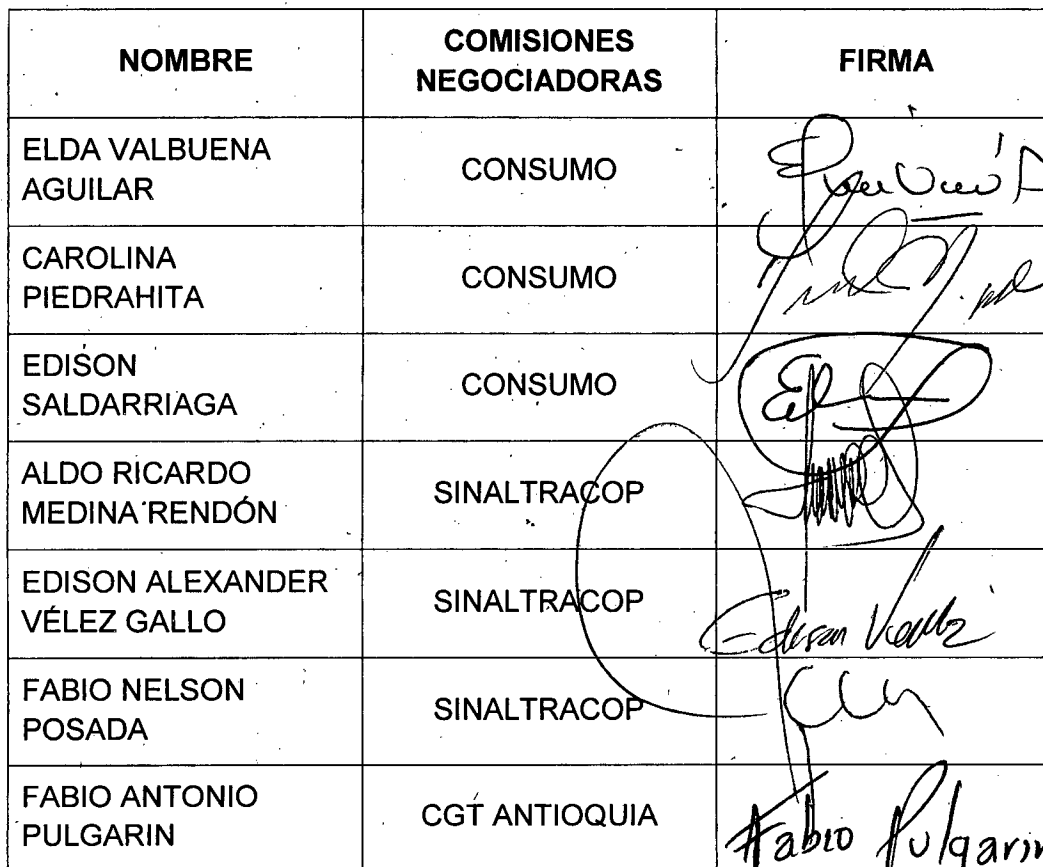 NOMBRE
COMISIONES
NEGOCIADORAS
FIRMA
ELDA VALBUENA
AGUILAR
CONSUMO
CAROLINA
PIEDRAHITA
CONSUMO
EDISON
SALDARRIAGA
CONSUMO
ALDO RICARDO
MEDINA RENDÓN
SINALTRACOP
EDISON ALEXANDER
VÉLEZ GALLO
SINALTRACOP
Edison
FABIO NELSON
POSADA
SINALTRACOP
FABIO ANTONIO
PULGARIN
CGT ANTIOQUIA
Fabio Pulgarin